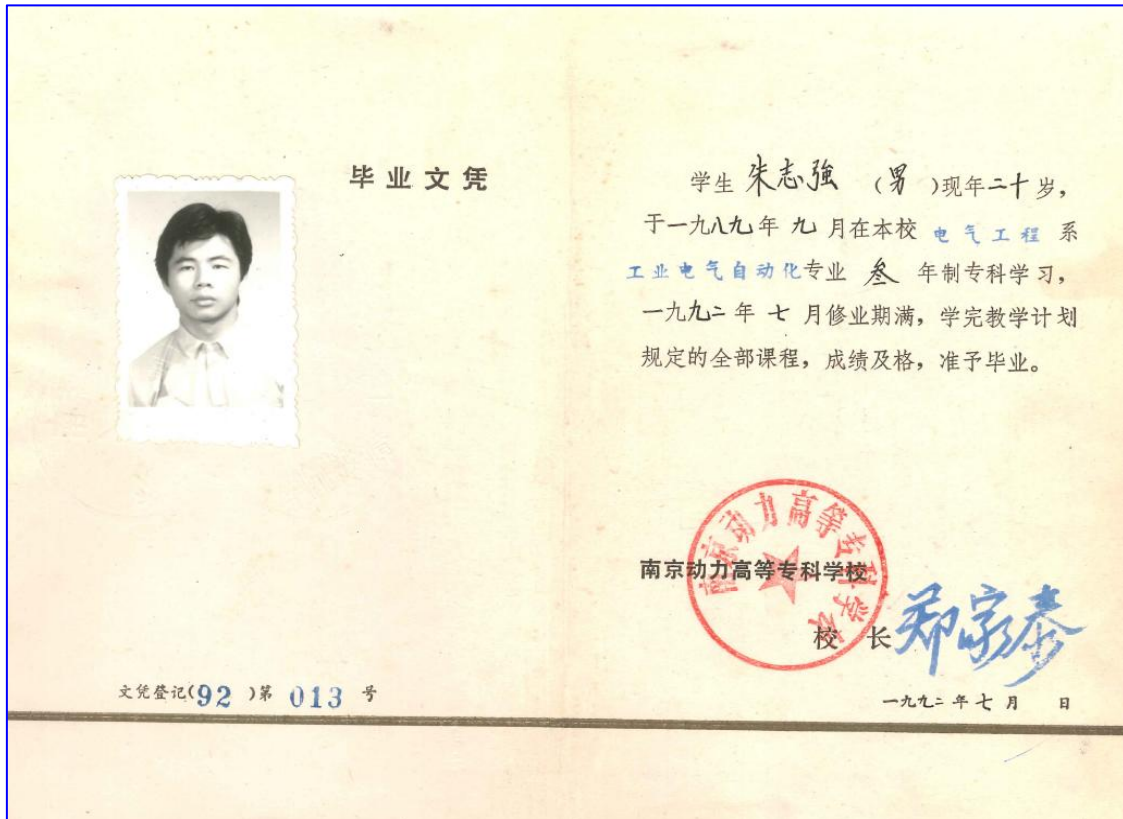 毕业文凭
文凭登记(92)第 013 号
学生 朱志強 (男)现年二十岁,
于一九八九年 九 月在本校 电气工程 系
工业电气自动化专业 叁 年制专科学习,
一九九二年 七 月修业期满, 学完教学计划
规定的全部课程, 成绩及格, 准予毕业。
南京动力高等专科学校
南京动力高等专科学校
校 长 郑家泰
一九九二年七月 日